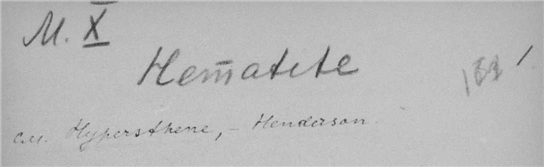 М. X
Hematite
см. Hypersthene, – Henderson.